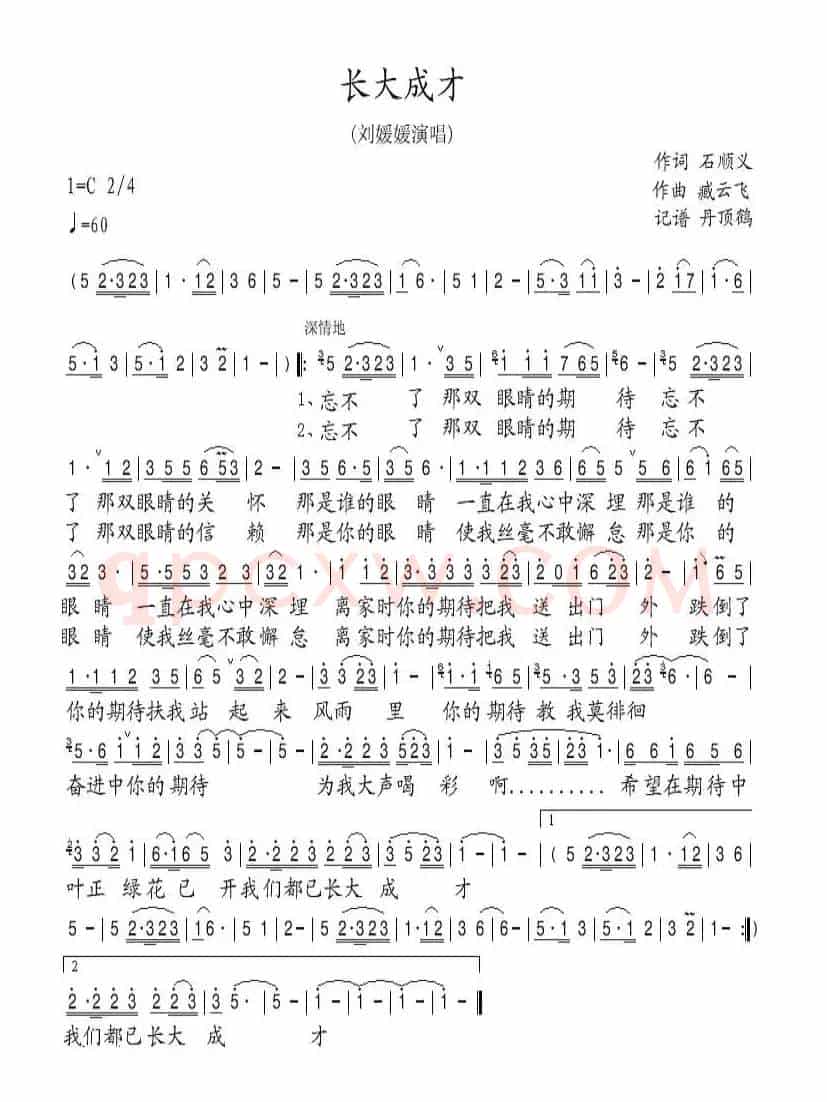 长大成才
(刘媛媛演唱)
作词 石顺义
1=C 2/4
作曲 臧云飞
♩=60
记谱 丹顶鹤
(5 2·323|1· 12|3 6|5 -|5 2·323|1 6·|5 1|2 -|5·3 1 1|3 -|2 17|1·6|
深情地
5·1 3|5·1 2|3 2|1 -)|:5 2·323|1· 3 5|1 1 1|7 65|6 -|5 2·323|
1、忘不 了 那双 眼睛的期 待 忘 不
2、忘不 了 那双 眼睛的期 待 忘 不
1· 1 2|3 5 5 6 53|2 -|3 5 3 5|6·|1·1 1 2 3 5|6 5· 5|6 1 65|
了 那双眼睛的关 怀 那是谁的眼 睛 一直在我心中深 埋 那是 谁 的
了 那双眼睛的信 赖 那是你的眼 睛 使我丝毫不敢懈 怠 那是 你 的
32 3·|5·5 5 3 2 3|32 1·|3·3 3 2|3·3 3 2 3|2 0 1 6 23|1 2·|6 5|
眼 睛 一直在我心中深 埋 离家时你的期待把我 送 出门 外 跌倒了
眼 睛 使我丝毫不敢懈 怠 离家时你的期待把我 送 出门 外 跌倒了
1·1 1 2 3 5|6 5· 3 2|2 -|3·2 1 2|3 -|1·1 6 5|3·5 6 5 2 3|6·|
你的期待扶我站 起 来 风雨 里 你的期待教 我莫徘徊
5·6 1 1 2|3 3 5 2|2 -|2 2 3 5|523 1·|3 5 3 5|3523 1·|6·6 1 6 5 6|
奋进中你的期待 为我大声喝 彩 啊.......... 希望在期待中
1
3 3 2 1|6·1 6 5|3·2 2 2 2 3|3 5 23|1 -|1 -|(5 2·323|1· 12|3 6|
叶正 绿花已 开我们都已长大 成 才
5 -|5 2·323|1 6·|5 1|2 -|5 2·323|1·12 3 6|5 -|5·1 3|5·1 2|3 2|1 -:|)
2
2·2 2 3 2 3|3 5·|5 -|1 -|1 -|1 -|
我们都已长大 成 才
qpcxw.COM